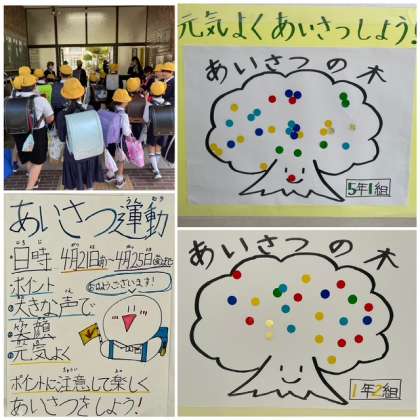 元気よくあいさつしよう!
あいさつの木
5年1組
あいさつ運動
うんどう
にちじ
・日時 4月21日(月)〜4月25日(金)まで
ポイント
おはようございます!
大きな声で
笑顔
元気よく
ポイントに注意して楽しく
あいさつをしよう!
あいさつの木
1年2組